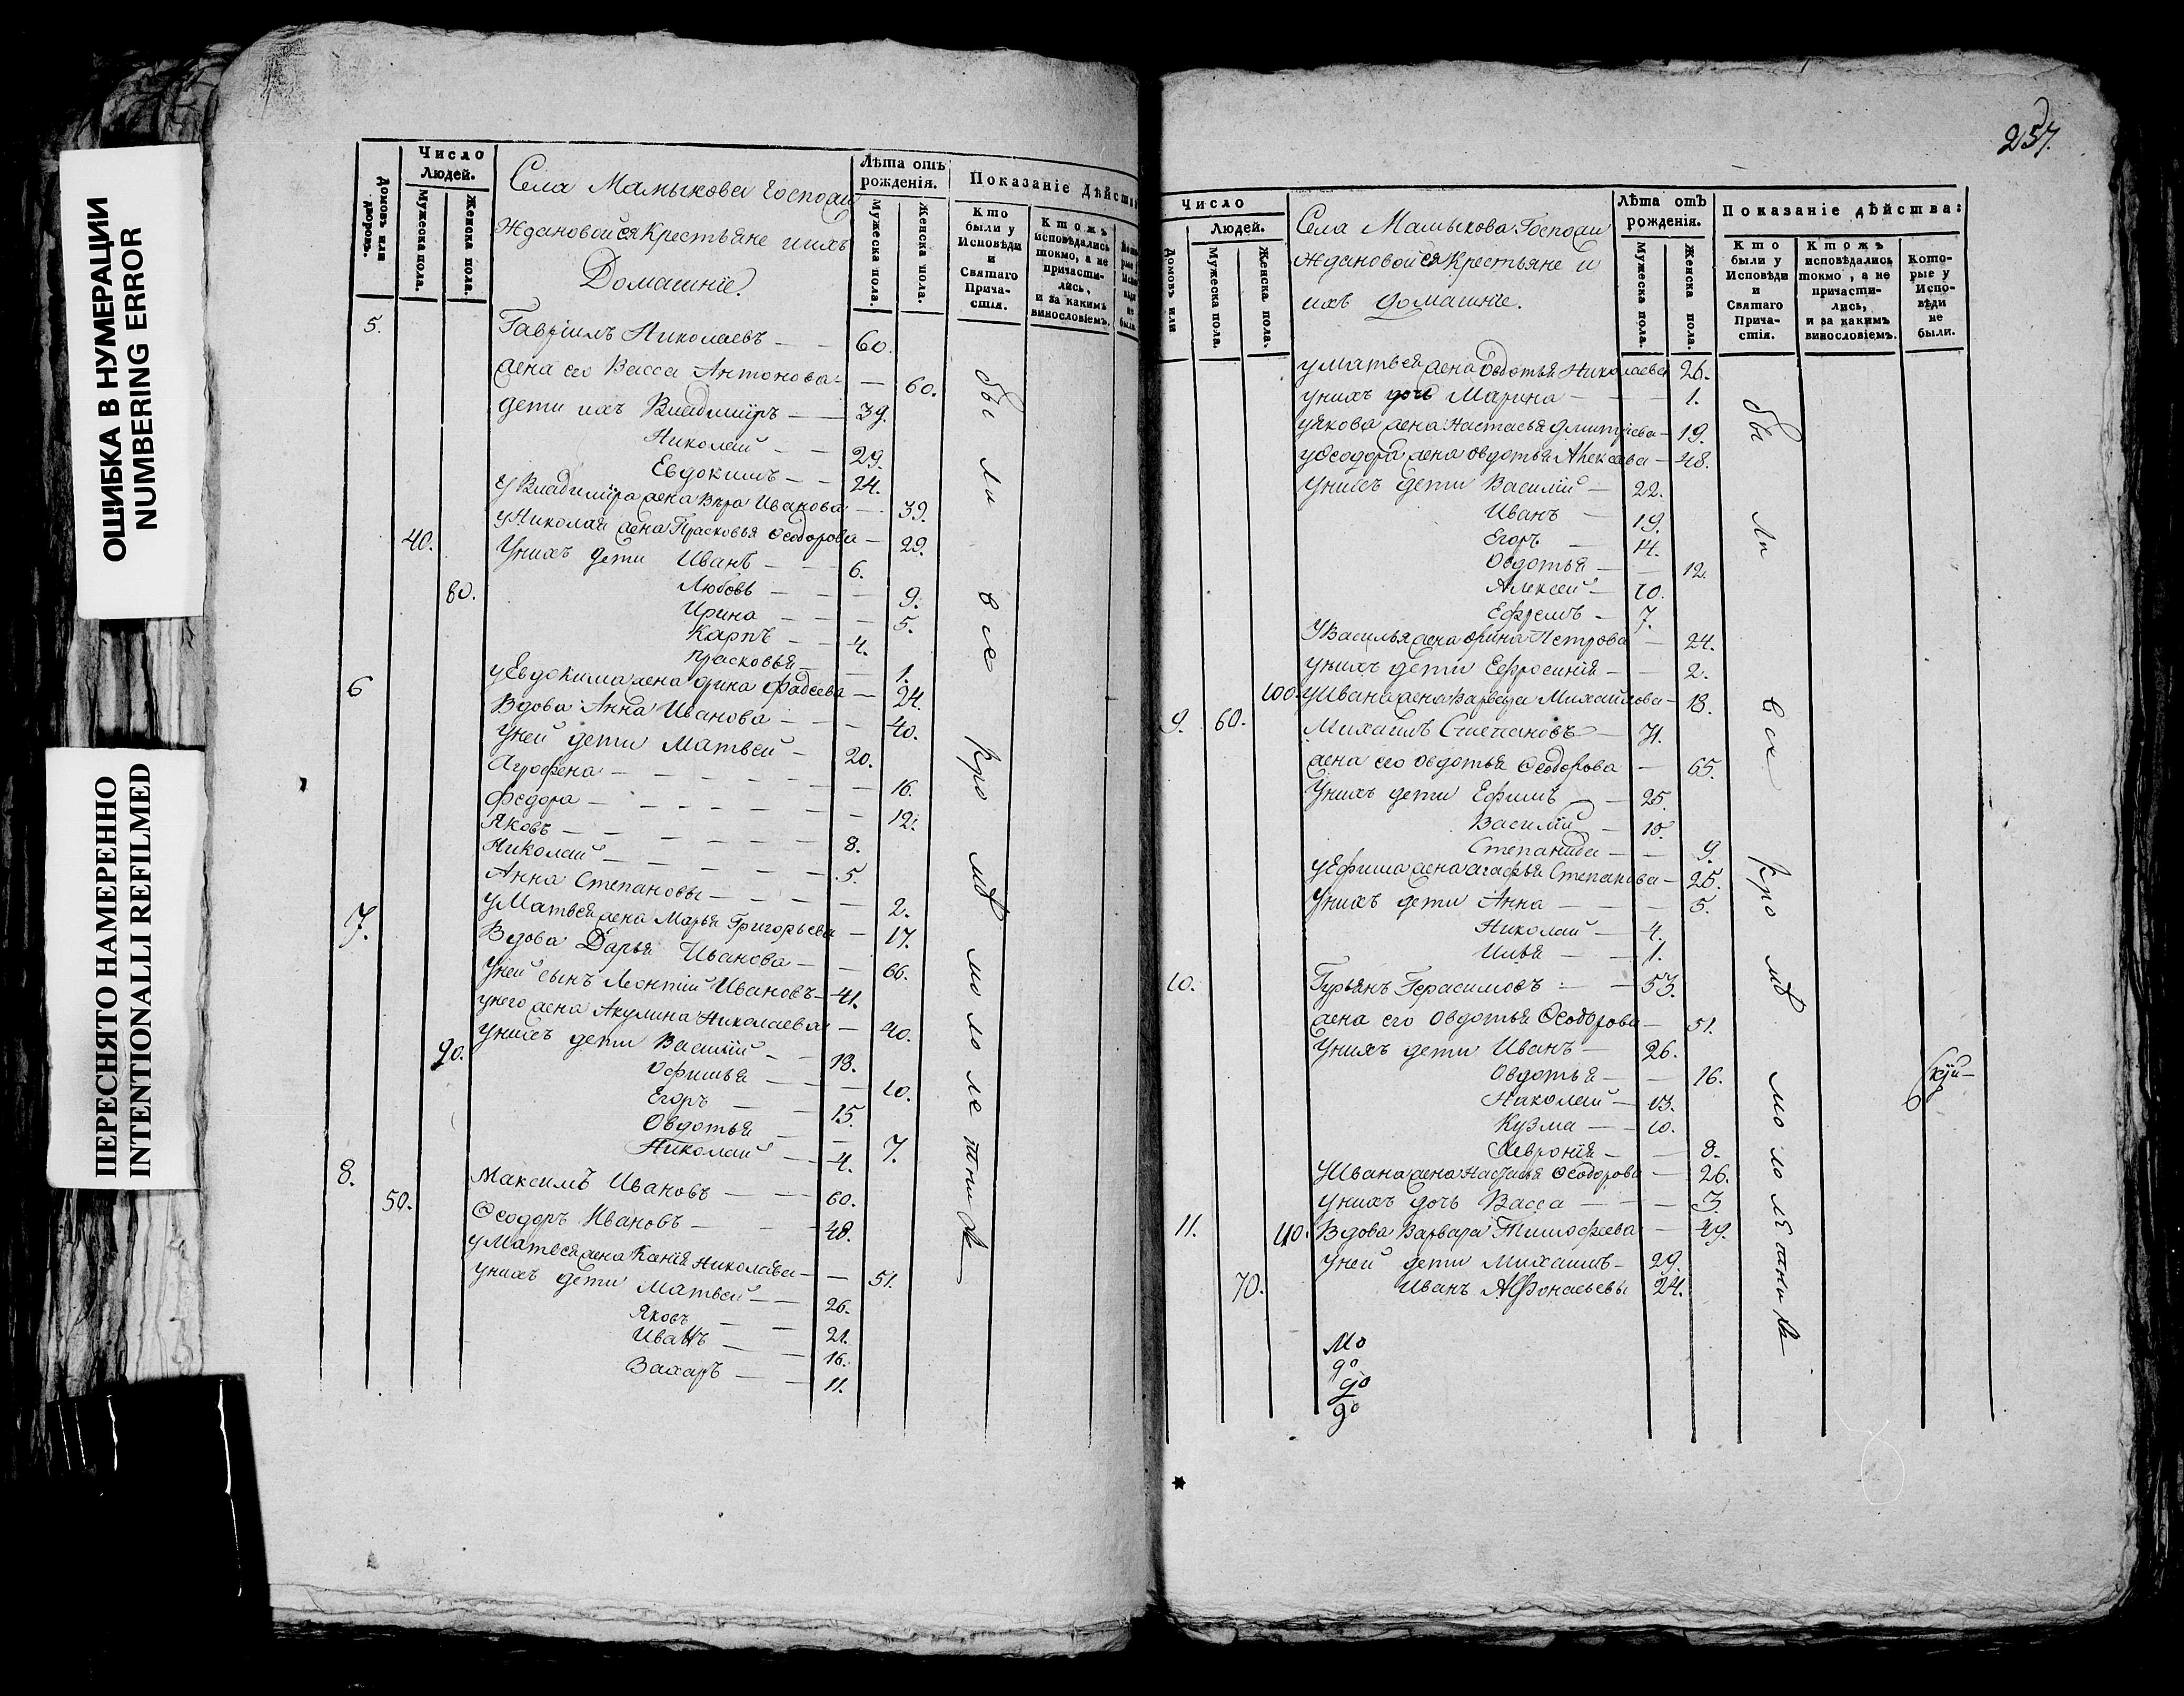 ОШИБКА В НУМЕРАЦИИ
NUMBERING ERROR
ПЕРЕСНЯТО НАМЕРЕННО
INTENTIONALLI REFILMED
Домовъ или дворовъ.
Число Людей.
Мужеска пола.
Женска пола.
Села Мамыкова Госпожи
Ждановой ея Крестьяне и ихъ
Домашніе.
Лѣта отъ рожденія.
Мужеска пола.
Женска пола.
Показаніе Дѣйств
Кто были у Исповѣди и Святаго Прича-стія.
Ктожъ исповѣдались токмо, а не причасти-лись, и за какимъ винословіемъ.
5. Гавріилъ Николаевъ — 60.
жена его Васса Антонова — 60.
дети ихъ Владимиръ — 39.
Николай — 29.
Евдокимъ — 24.
у Владимира жена Вѣра Иванова — 39.
у Николая жена Прасковья Ѳеодорова — 29.
40. У нихъ дети Иванъ — 6.
80. Любовь — 9.
Ирина — 5.
Карпъ — 4.
Прасковья — 1.
у Евдокима жена Орина Фадеева — 24.
6 Вдова Анна Иванова — 40.
У ней дети Матвей — 20.
Агрофена — 16.
Федора — 12.
Яковъ — 8.
Николай — 5.
Анна Степановы — 2.
у Матвея жена Марья Григорьева — 17.
7. Вдова Дарья Иванова — 66.
У ней сынъ Леонтій Ивановъ — 41.
у него жена Акулина Николаева — 40.
90. У нихъ дети Василій — 18.
Офимья — 10.
Егоръ — 15.
Овдотья — 7.
Николай — 4.
8. Максимъ Ивановъ — 60.
50. Ѳеодоръ Ивановъ — 48.
у Матвея жена Ксенія Николаева — 51.
У нихъ дети Матвей — 26.
Яковъ — 21.
Иванъ — 16.
Захаръ — 11.
бы ли все кро мѣ мо ло ле тни
257.
Число
Домовъ или
Людей.
Мужеска пола.
Женска пола.
Села Мамыкова Госпожи
Ждановой ея Крестьяне и
ихъ домашніе.
Лѣта отъ рожденія.
Мужеска пола.
Женска пола.
Показаніе дѣйства:
Кто были у Исповѣди и Святаго Прича-стія.
Ктожъ исповѣдались токмо, а не причасти-лись, и за какимъ винословіемъ.
Кото-рые у Испо-вѣди не были.
у Матвея жена Овдотья Николаева 26.
у нихъ дочь Марина — 1.
у Якова жена Настасья Дмитріева — 19.
у Ѳеодора жена Овдотья Алексеева — 48.
У нихъ дети Василій — 22.
Иванъ — 19.
Егоръ — 14.
Овдотья — 12.
Алексей — 10.
Ефремъ — 7.
У Василья жена Орина Петрова — 24.
У нихъ дети Ефросинія — 2.
100. У Ивана жена Варвара Михайлова — 18.
9. 60. Михаилъ Степановъ — 71.
жена его Овдотья Ѳеодорова — 65.
У нихъ дети Ефимъ — 25.
Василій — 15.
Степанида — 9.
у Ефима жена Агафья Степанова — 25.
У нихъ дети Анна — 5.
Николай — 4.
Илья — 1.
10. Гурьянъ Герасимовъ — 53.
жена его Овдотья Ѳеодорова — 51.
У нихъ дети Иванъ — 26.
Овдотья — 16.
Николай — 13.
Кузма — 10.
Хеврония — 8.
У Ивана жена Настасья Ѳеодорова — 26.
У нихъ дочь Васса — 3.
11. 110. Вдова Варвара Тимофеева — 49.
У ней дети Михаилъ — 29.
70. Иванъ Афонасьевы 24.
бы ли все кро мѣ мо ло лѣ тни